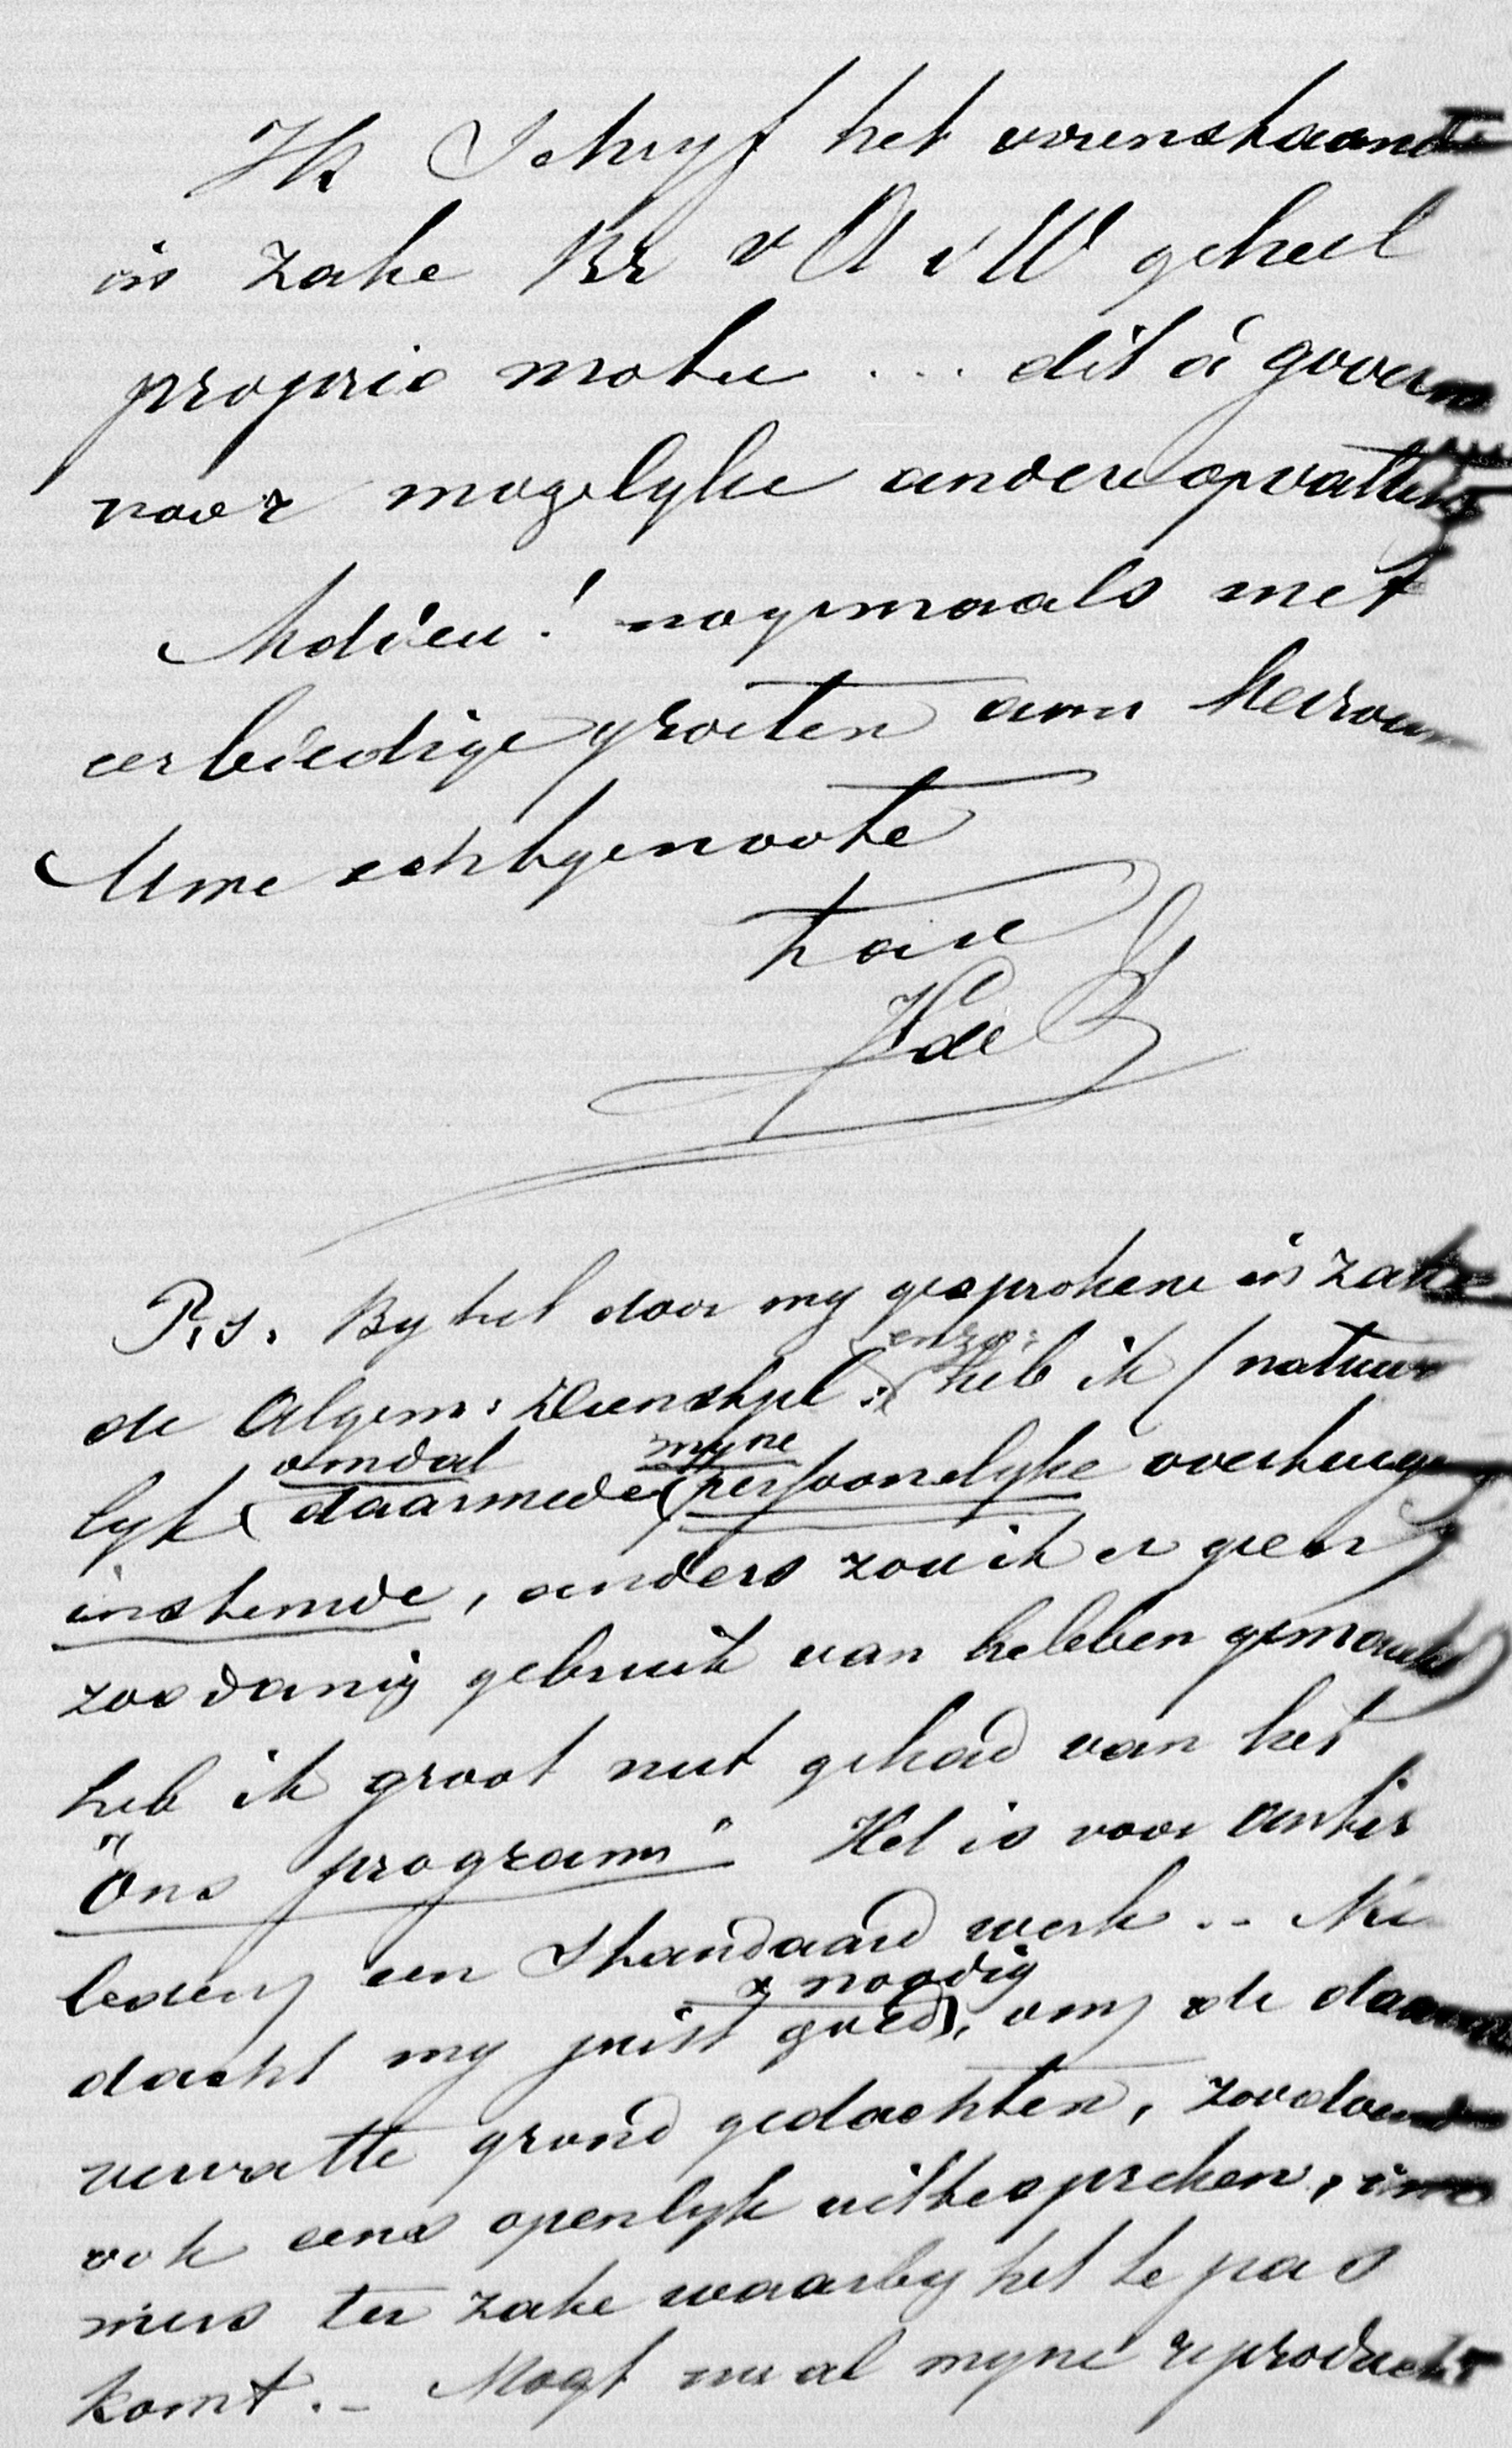 Ik Schryf het vorenstaande
in zake Br v A i W geheel
proprio motu ... dit à gouvern
voor mogelyke andere opvatting
Adieu! nogmaals met
eerbiedige groeten aan Mevrouw
Uwe echtgenoote
t. a. v.
de
P.s. By het door my gesprokene in zake
de Algem: Dienstpl: enzo: heb ik (natuur
lyk omdat daarmede myne persoonelyke overtuiging
instemde, anders zou ik er geen
zoodanig gebruik van hebben gemaakt)
heb ik groot nut gehad van het
"Ons program" Het is voor antir
leden een Standaard werk .. Mi
dacht my juist goed & noodig, om de daarin
vervatte grond gedachten, zoodoende
ook eens openlyk uittespreken, im
mers ter zake waarby het te pas
komt. - Mogt nu al myne reproductie